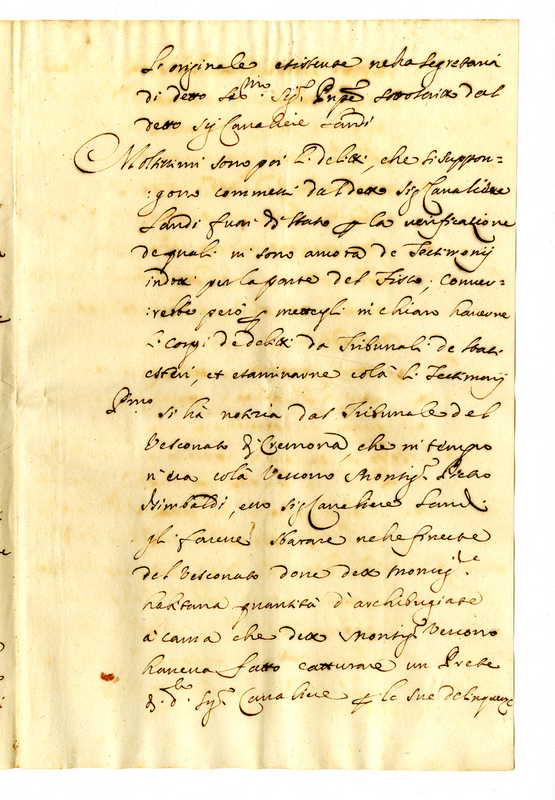 L'originale esistente nella Segretaria
di detto Ser.mo Sig.r Prnpe sottoscritta dal
detto Sig Cavaliere Landi
Moltissimi sono poi li delitti, che si suppon=
:gono commessi dal detto Sig Cavaliere
Landi fuori di Stato, p la verificatione
de quali vi sono ancora de Testimonij
indotti per la parte del Fisco; conver=
:rebbe però p mettergli in chiaro haverne
li corpi de delitti da Tribunali de Stati
esteri, et esaminarne colà li Testimonij
Pmo Si hà notizia dal Tribunale del
Vesconato di Cremona, che in tempo
v'era colà Vescovo Monsig.r Pietro
Isimbaldi, esso Sig Cavaliere Landi
gli faceva sbarare nelle finestre
del Vesconato dove detto Monsig.re
habitava quantità d'archibugiate
à causa che detto Monsig.r Vescovo
haveva fatto catturare un Prete
di d.to Sig.r Cavaliere p le sue delinquenze